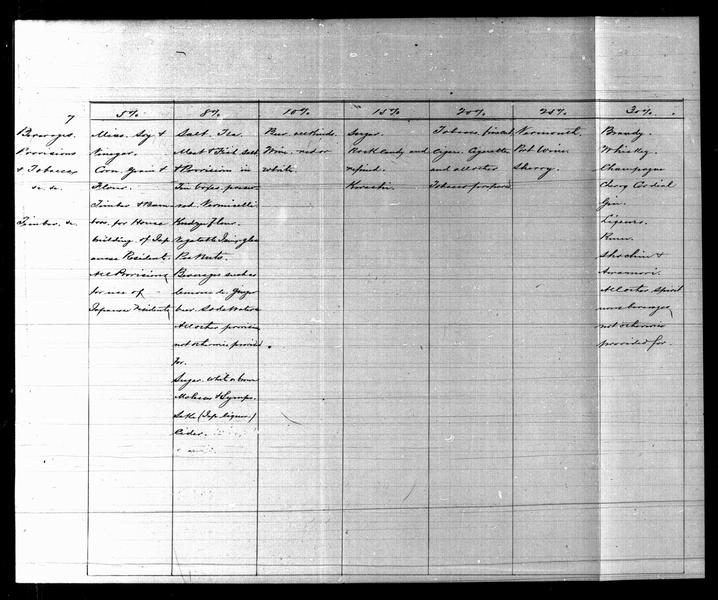 7
Beverages
Provisions
& Tobaccos
&c. &c.
Timber &c
5%
Miso. Soy &
Vinegar.
Corn Grain &
Flour.
Timber & Bam
boo. for House
building of Jap
anese Resident.
All Provisions
for use of
Japanese Residents
8%
Salt. Tea.
Meat & Fish salt
& Provision in
Tin boxes. preser
ved. Vermicelli
Flour.
Vegetable
Pea Nuts.
Beverages such as
lemonade. Ginger
beer. Soda Water
All other provision
not otherwise provided
for.
Sugar. white or brown
Molasses & Syrups.
Sake (Jap. liquor)
Cider.
10%
Beer all kinds.
Wine. red or
white.
15%
Sugar
Rock candy and
refined.
20%
Tobacco.
Cigar. Cigarettes
and all other
Tobacco prepared
25%
Vermouth
Port Wine
Sherry.
30%
Brandy.
Whiskey.
Champagne
Cherry Cordial
Gin.
Liqueurs.
Rum.
Shochiu &
Awamori.
All other Spirit
uous beverages
not otherwise
provided for.